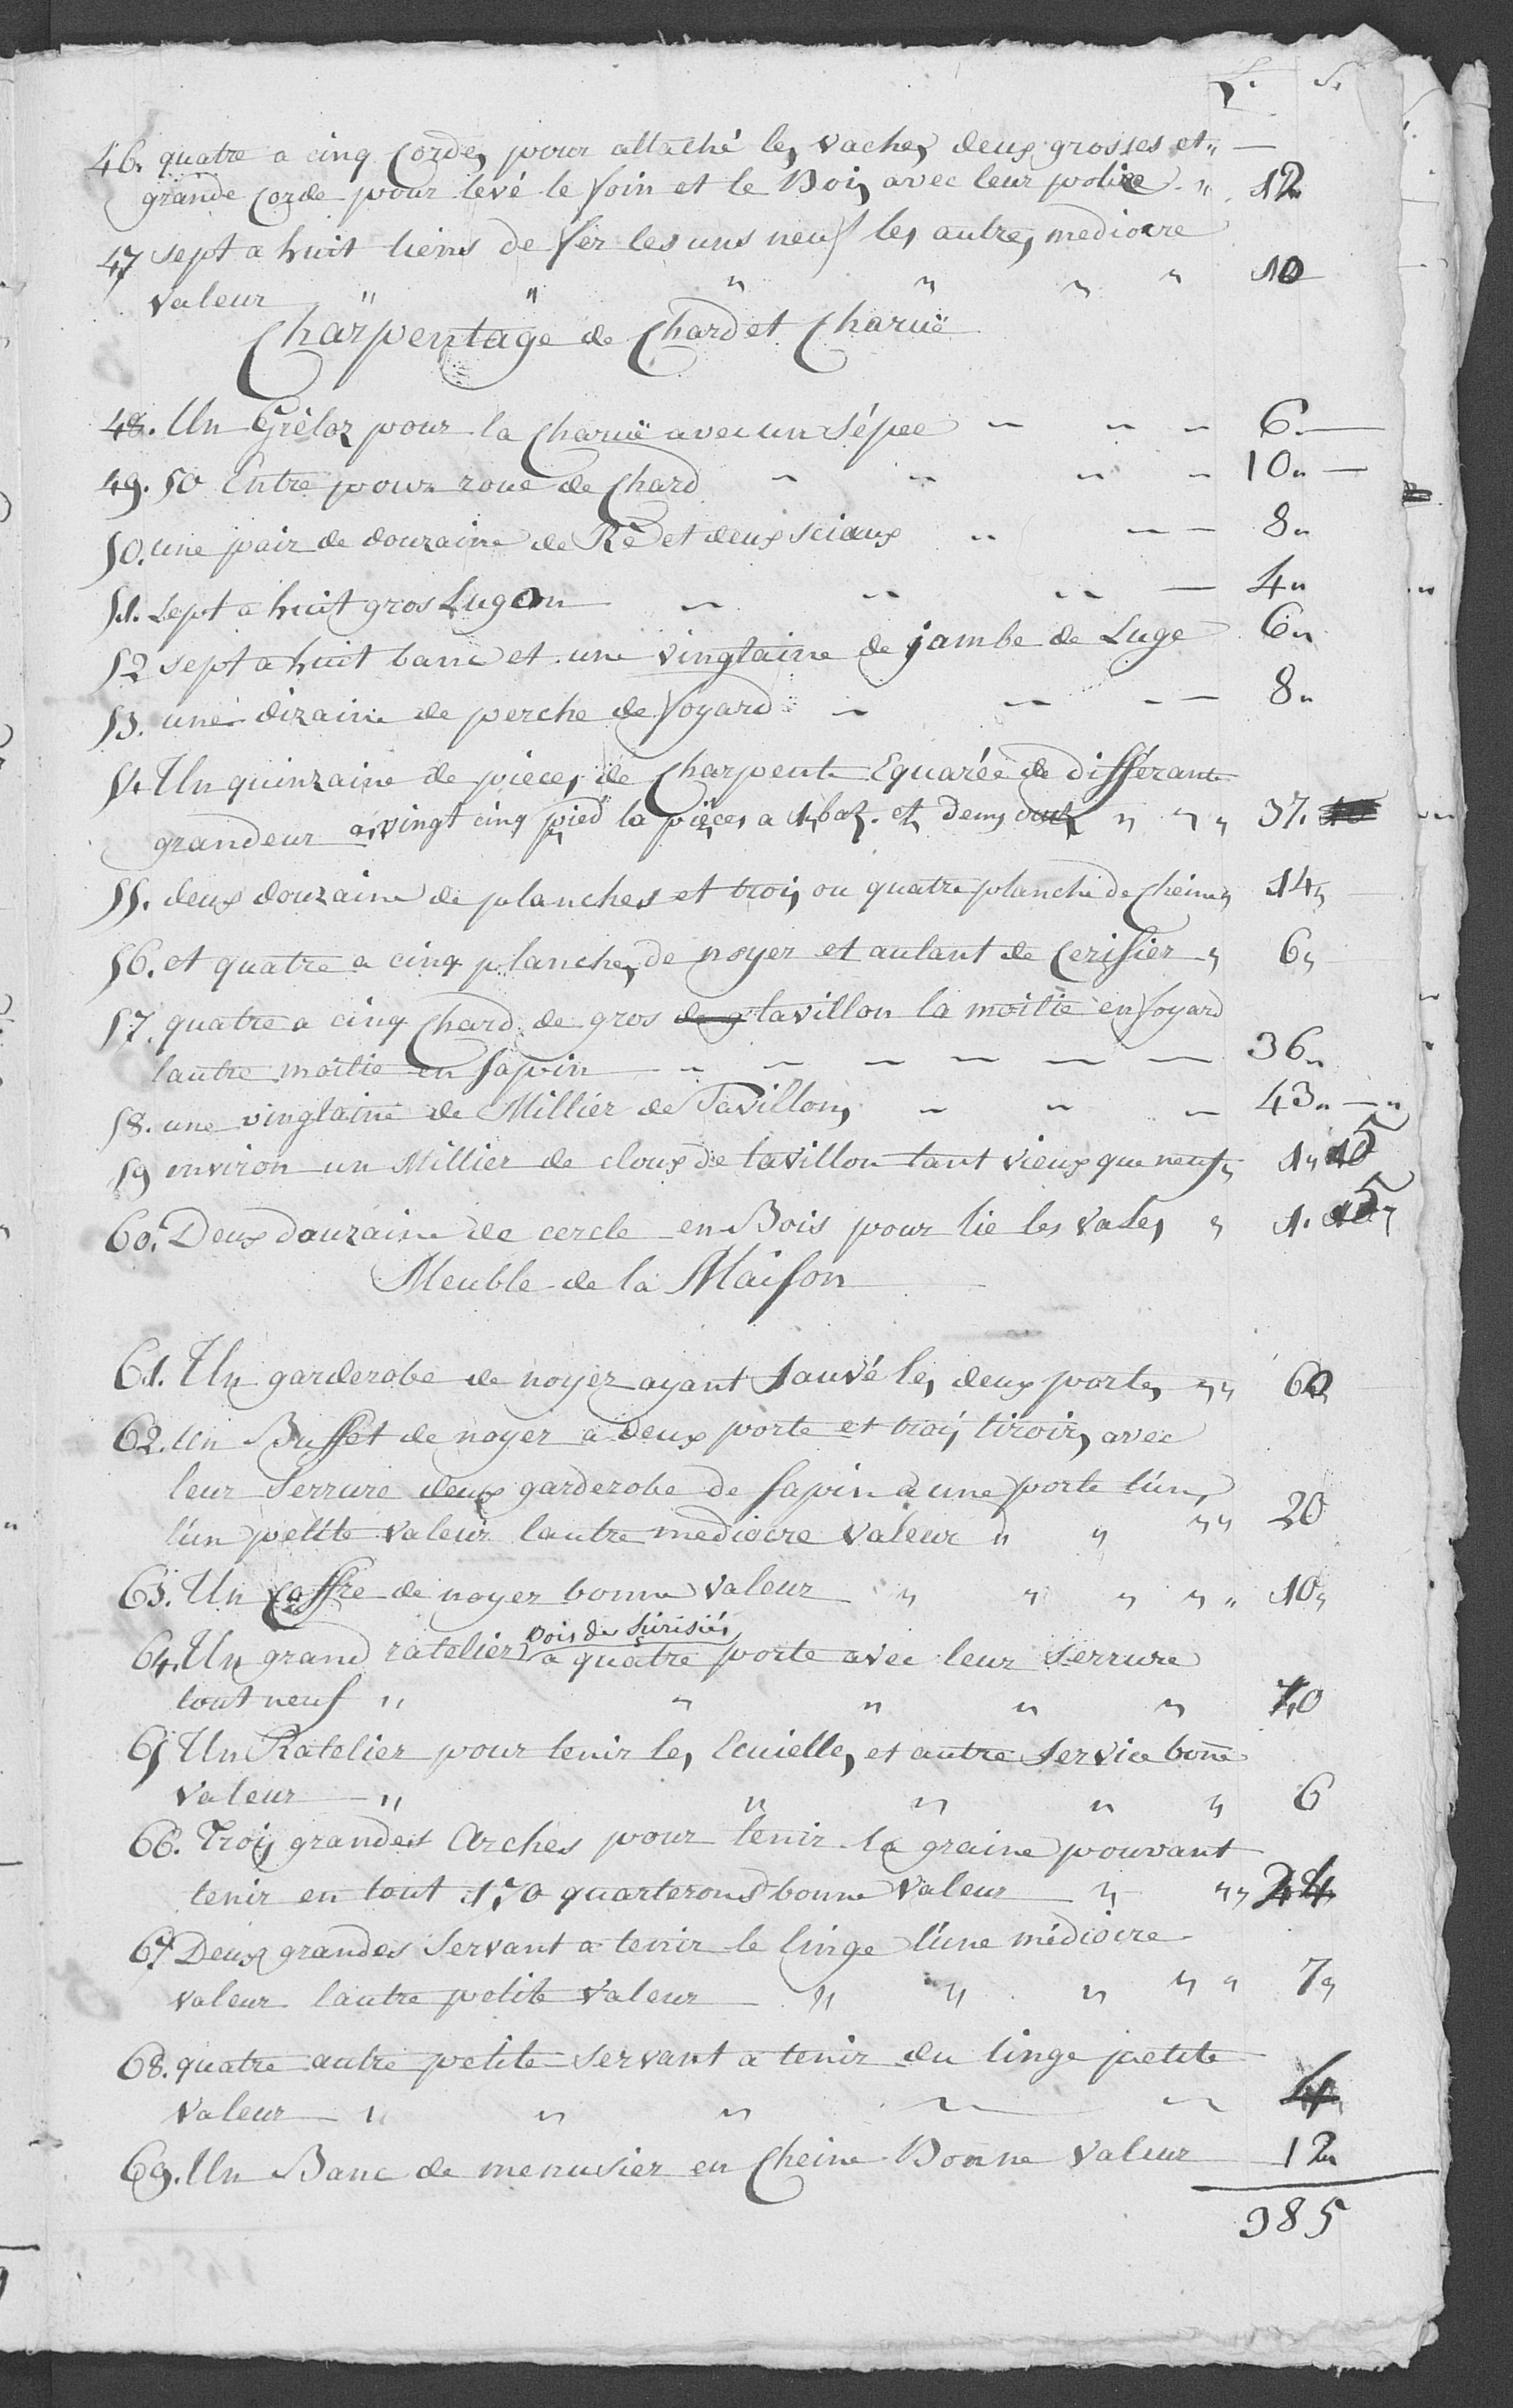 L. S.
46. quatre a cinq Cordes pour attaché les vaches deux grosses et " —
grande Corde pour levé le foin et le Bois avec leur police " 12
47 sept a huit liens de fer les uns neuf les autres mediocre
valeur " " " " " " 10
Charpentage de Chard et Charuë
48. Un Grèloz pour la Charuë avec un Sépee " " " 6. —
49. 50 Entre pour roue de Chard " " " " 10 " —
50. une pair de douzaine de Rê et deux sciaux " — — 8 "
51. Sept a huit gros Lugeon " " " — 4 "
52 sept a huit banc et une vingtaine de jambe de Luge 6 "
53. une dizaine de perche de foyard " " " — 8 "
54. Un quinzaine de pieces de Charpente Equarée de differante
grandeur a vingt cinq pied la pieces a 1 baz. et demy " " " 37.
55. deux douzaine de planches et trois ou quatre planche de Cheine " 14 "
56. et quatre a cinq planches de noyer et autant de Cerisier " 6 "
57. quatre a cinq Chard de gros de g tavillon la moitie en foyard
lautre moitie en sapin " — — — — — 36 "
58. une vingtaine de Millier de Tavillons " " — 43 " — "
59 environ un Millier de cloux de tavillon tant vieux que neufs 1 " 15
60. Deux douzaine de cercle en Bois pour lie les vases " 1. 15 "
Meuble de la Maison
61. Un garderobe de noyer ayant sauvé les deux portes " " 60
62. Un Buffet de noyer a deux porte et trois tiroirs avec
leur Serrure deux garderobe de sapin a une porte l'un,
l'un petite valeur lautre mediocre valeur " " " " 20
63. Un Coffre de noyer bonne valeur " " " " " 10 "
64. Un grand ratelier Bois de Sirisiés a quatre porte avec leur serrure
tout neuf " " " " " 70
65 Un Ratelier pour tenir les Ecuielles et autre Service bone
valeur " " " " " 6
66. Trois grandes Arches pour tenir la graine pouvant
tenir en tout 170 quarterons bonne valeur " " " 24
67. Deux grandes Servant a tenir le linge l'une médiocre
valeur lautre petite valeur " " " " " 7 "
68. quatre autre petite Servant a tenir du linge petite
valeur " " " " " 4
69. Un Banc de menusier en Cheine Bonne Valeur 12 "
385